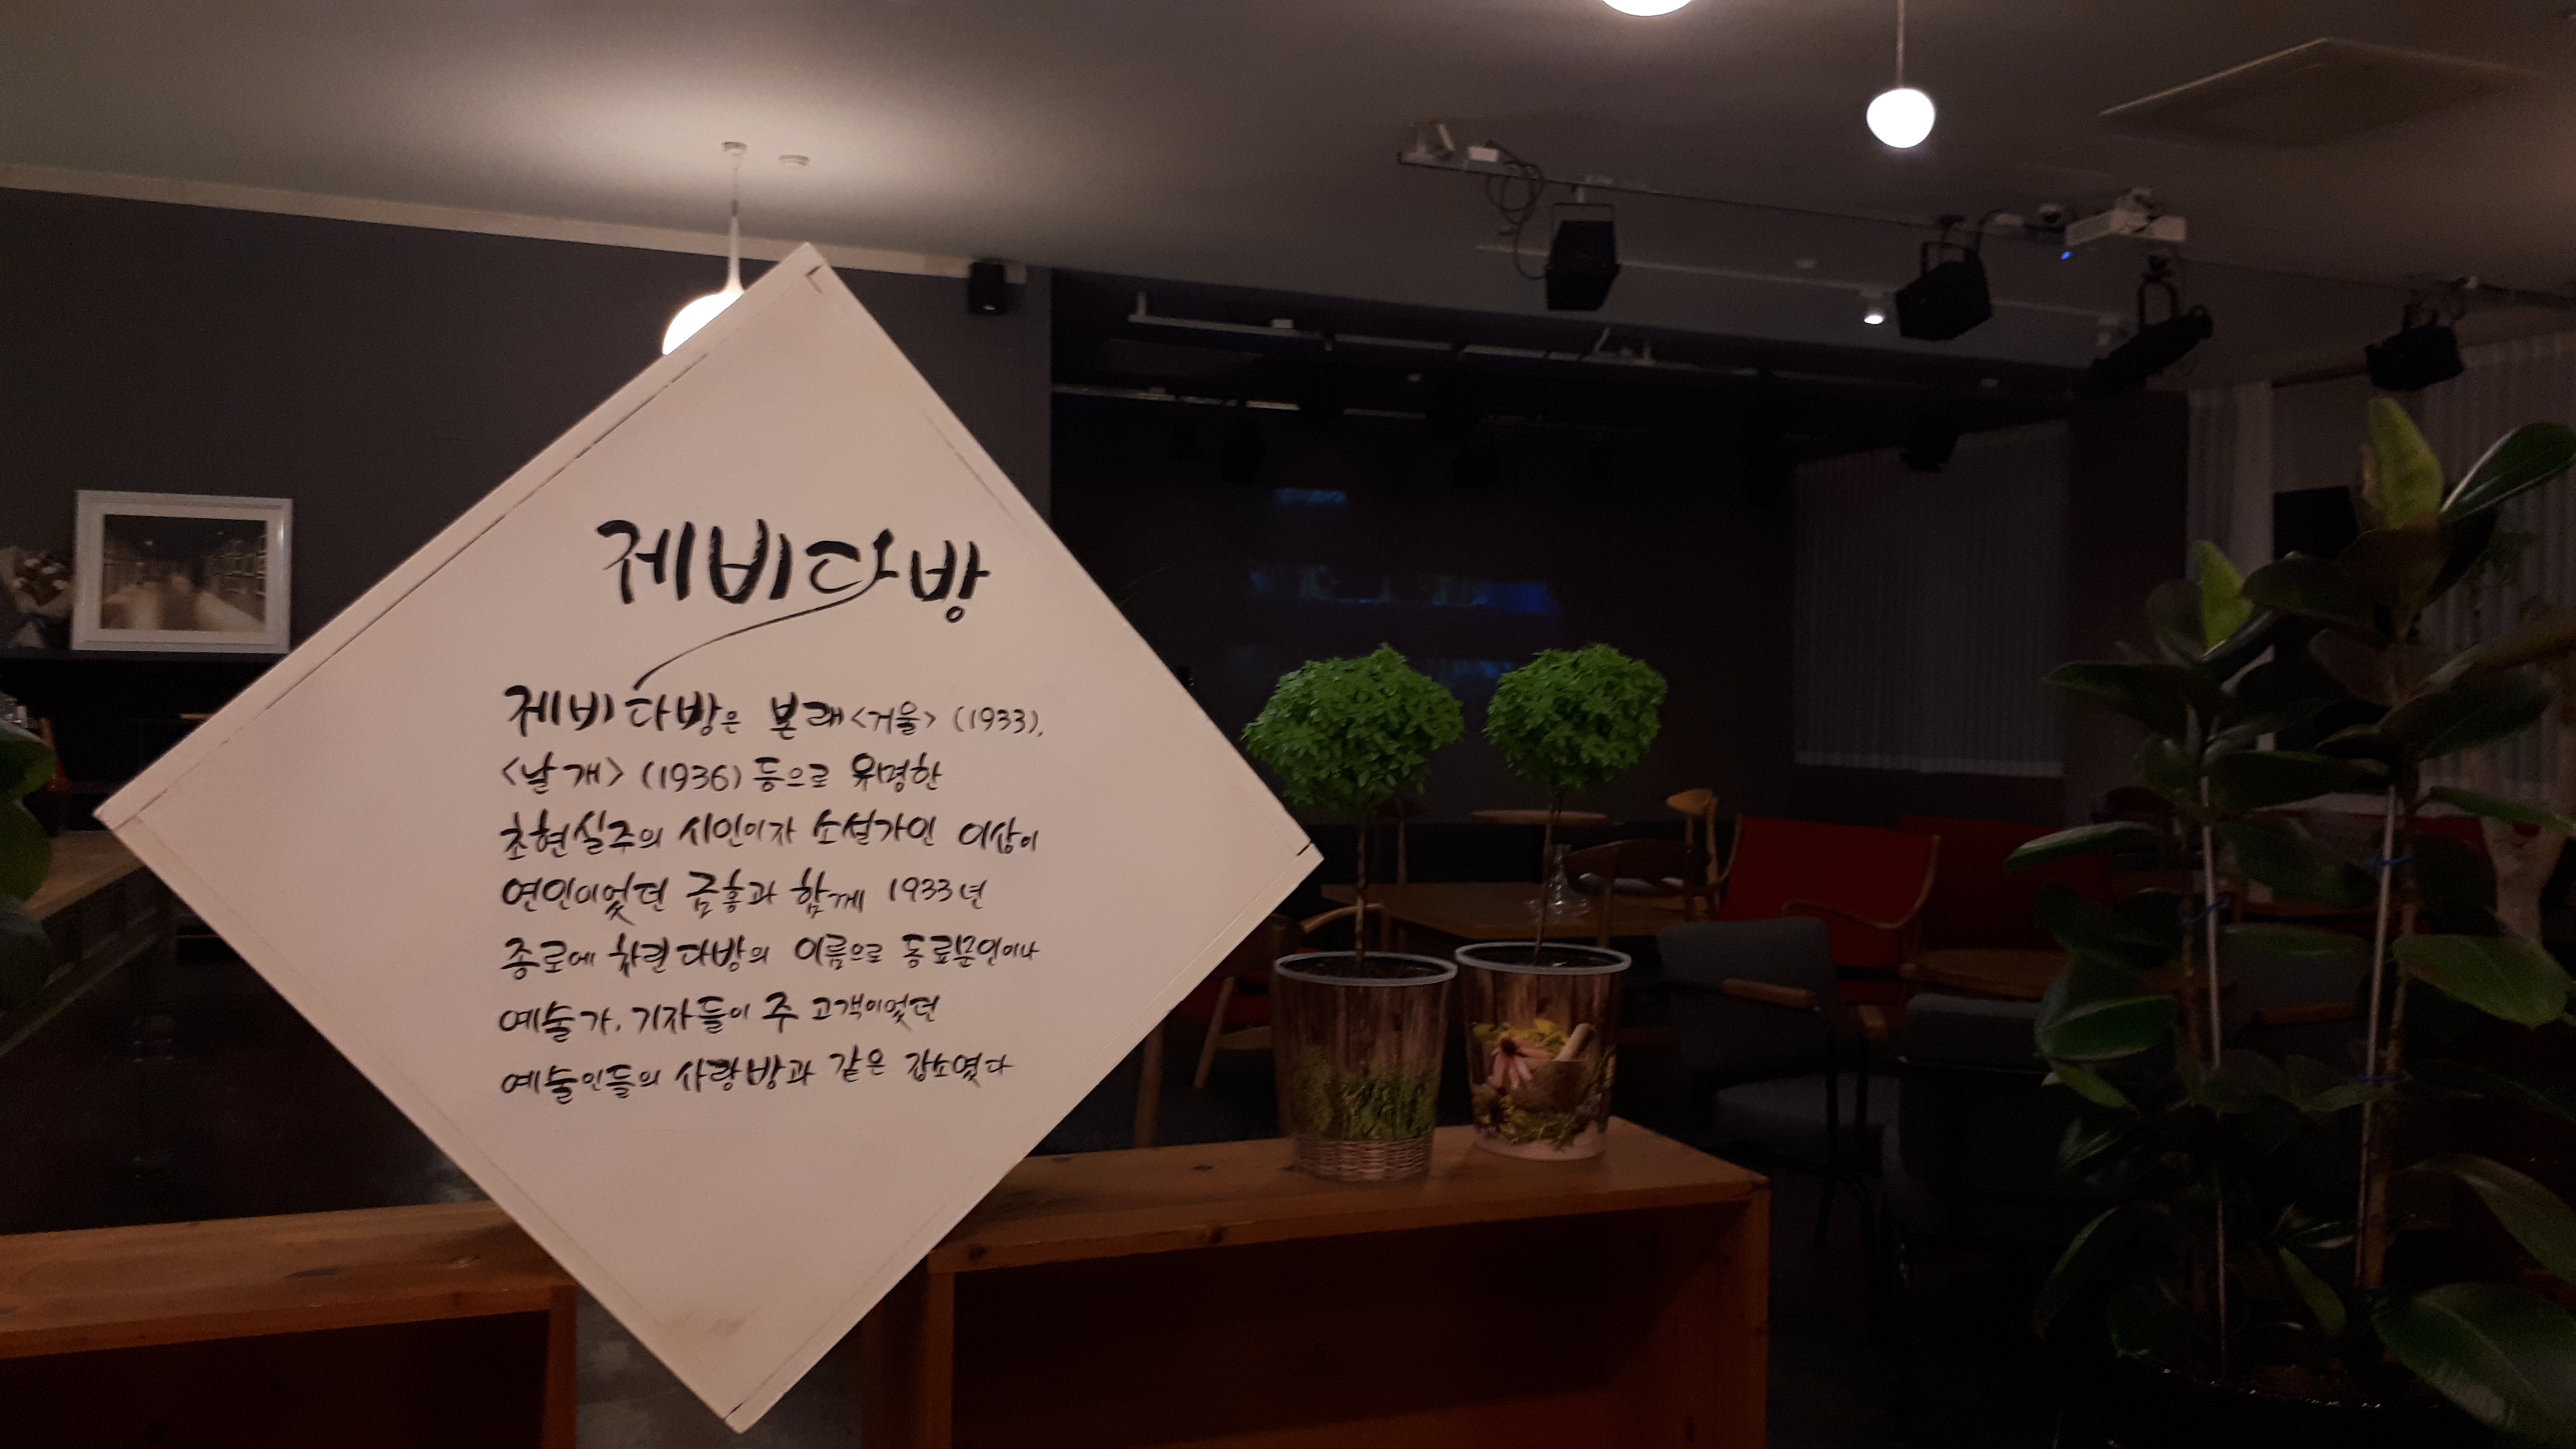 제비다방
제비다방은 본래 <거울> (1933),
<날개> (1936) 등으로 유명한
초현실주의 시인이자 소설가인 이상이
연인이었던 금홍과 함께 1933년
종로에 차린 다방의 이름으로 동료문인이나
예술가, 기자들이 주 고객이었던
예술인들의 사랑방과 같은 장소였다